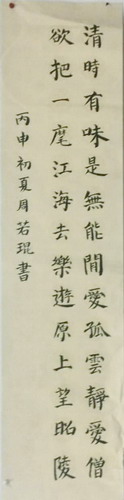 清時有味是無能閒愛孤雲靜愛僧
欲把一麾江海去樂遊原上望昭陵
丙申初夏月若琨書